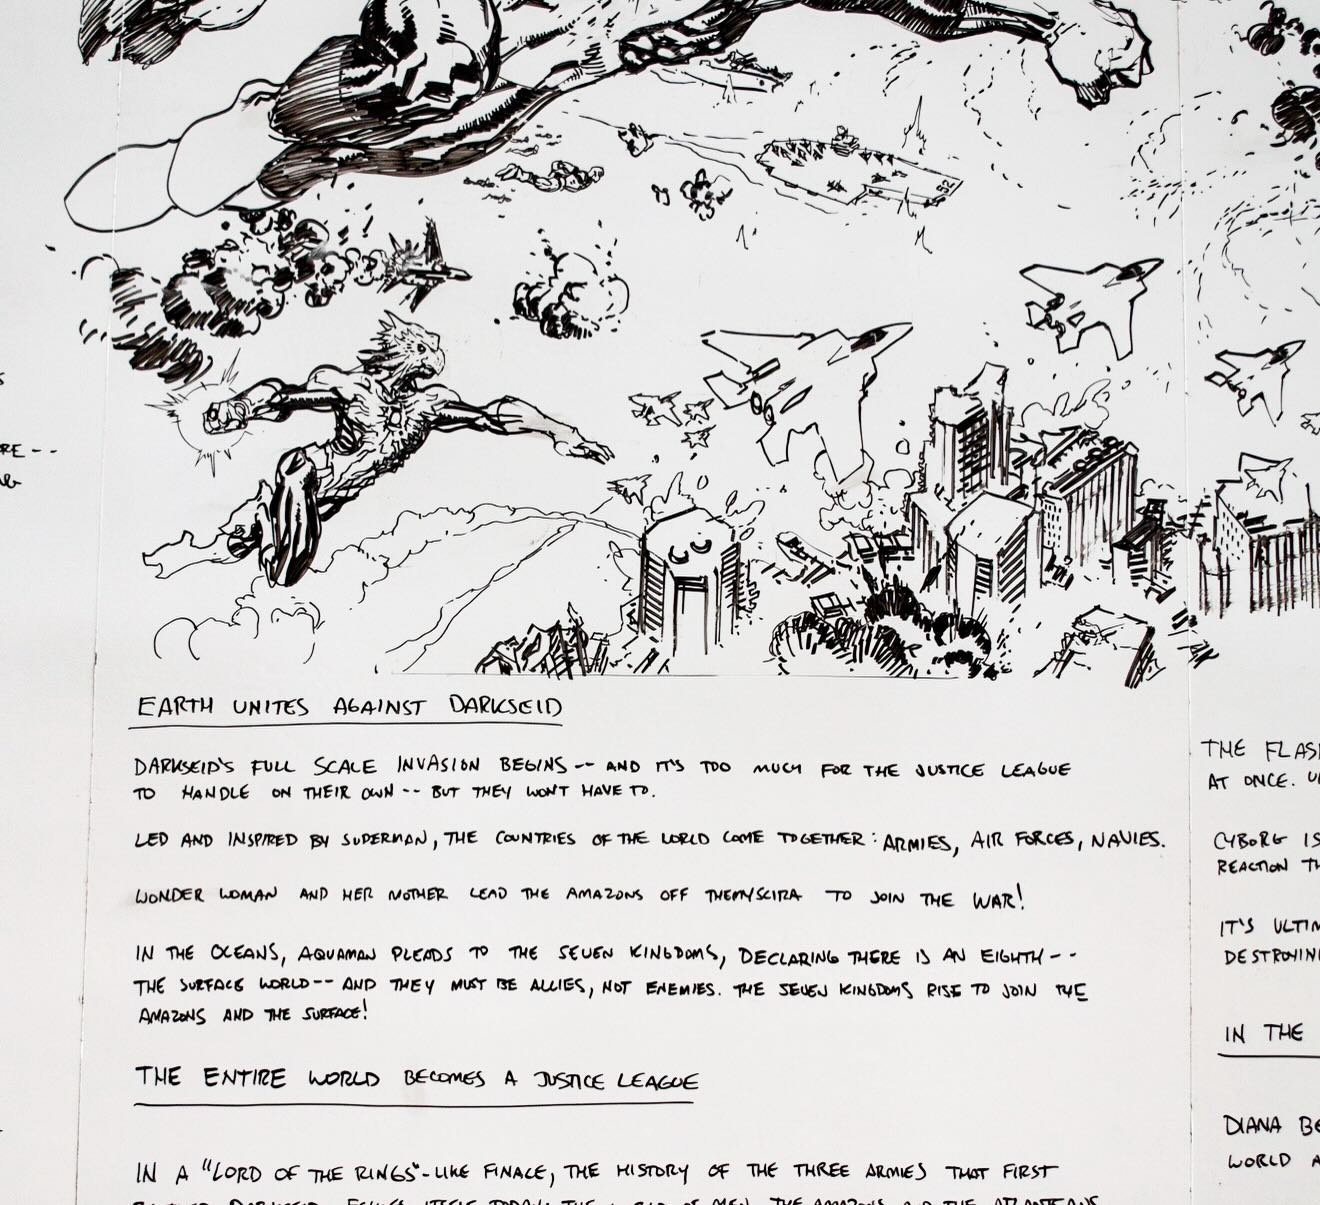 RE--
EARTH UNITES AGAINST DARKSEID
DARKSEID'S FULL SCALE INVASION BEGINS -- AND IT'S TOO MUCH FOR THE JUSTICE LEAGUE
TO HANDLE ON THEIR OWN -- BUT THEY WON'T HAVE TO.
LED AND INSPIRED BY SUPERMAN, THE COUNTRIES OF THE WORLD COME TOGETHER: ARMIES, AIR FORCES, NAVIES.
WONDER WOMAN AND HER MOTHER LEAD THE AMAZONS OFF THEMYSCIRA TO JOIN THE WAR!
IN THE OCEANS, AQUAMAN PLEADS TO THE SEVEN KINGDOMS, DECLARING THERE IS AN EIGHTH--
THE SURFACE WORLD-- AND THEY MUST BE ALLIES, NOT ENEMIES. THE SEVEN KINGDOMS RISE TO JOIN THE
AMAZONS AND THE SURFACE!
THE ENTIRE WORLD BECOMES A JUSTICE LEAGUE
IN A "LORD OF THE RINGS"-LIKE FINALE, THE HISTORY OF THE THREE ARMIES THAT FIRST
THE FLAS
AT ONCE.
CYBORG IS
REACTION TH
IT'S ULTIM
DESTROYIN
IN THE
DIANA BE
WORLD A